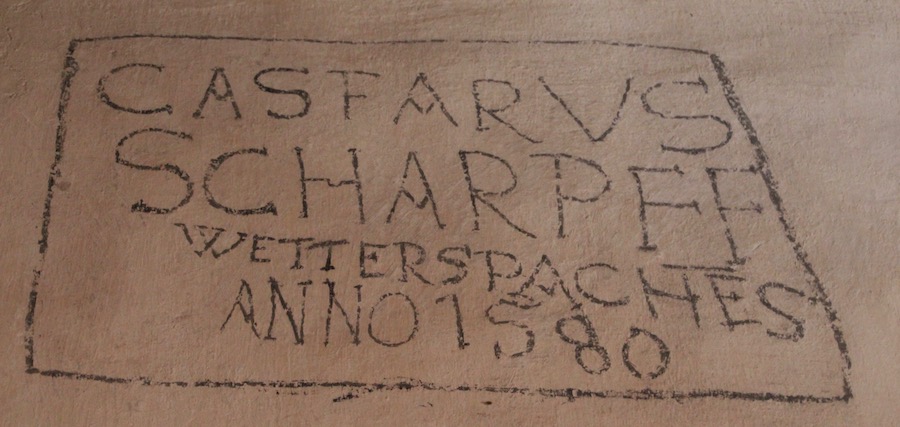 CASFARVS
SCHARPFF
WETTERSPACHES
ANNO 1580